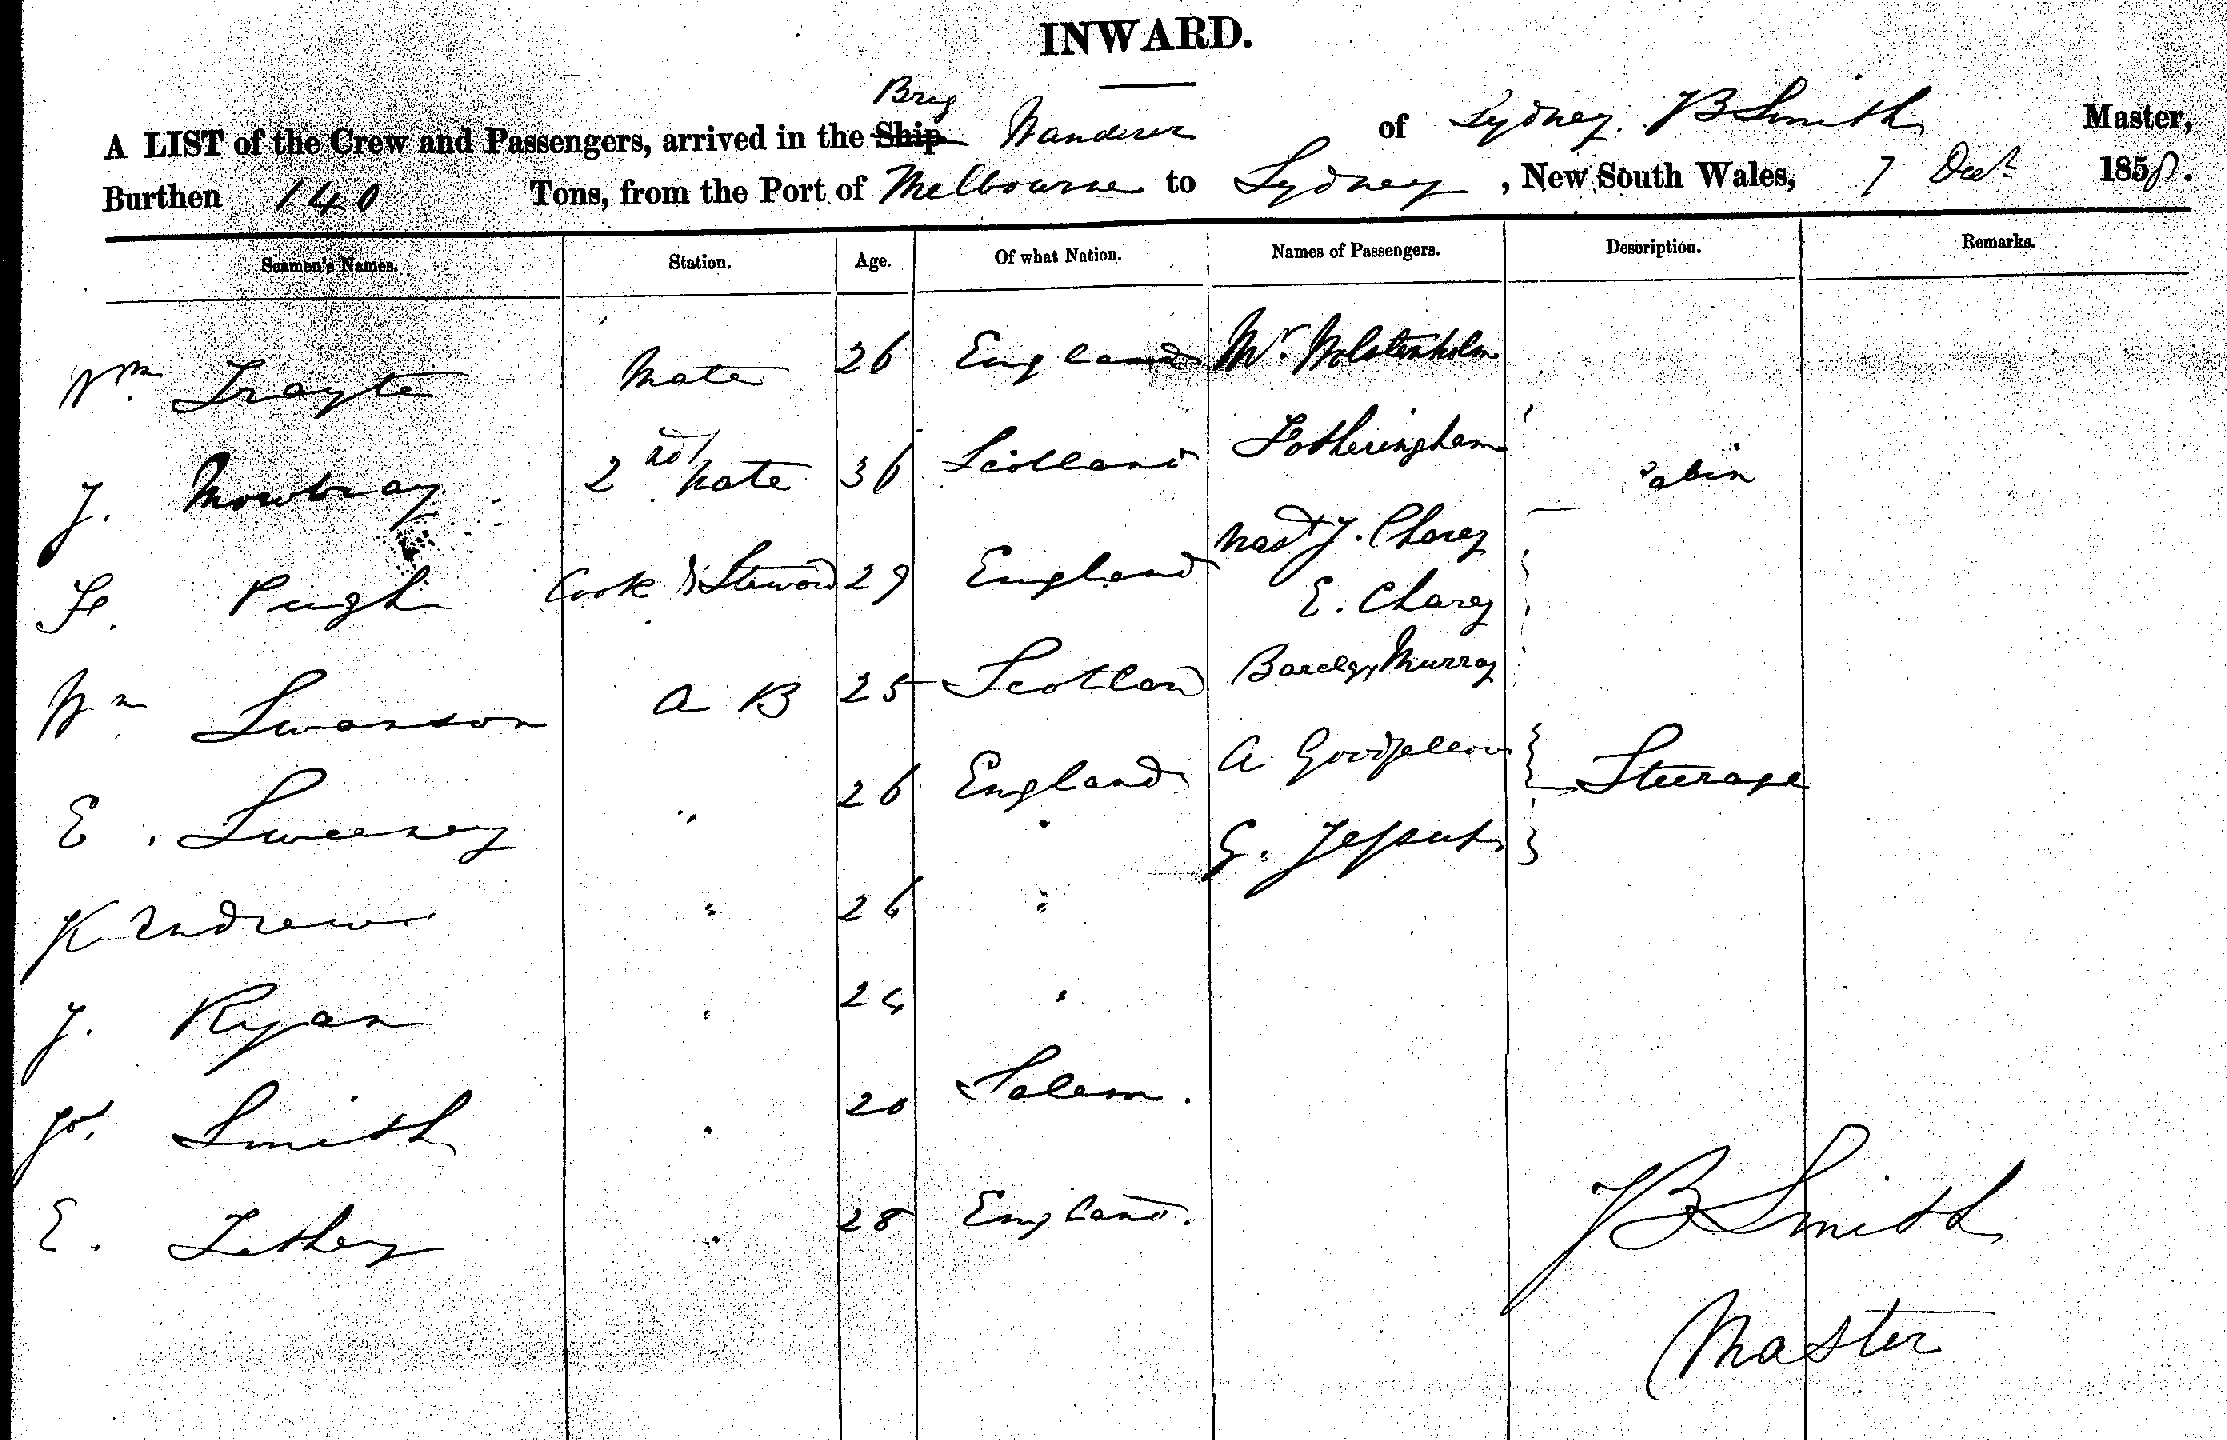 INWARD.
Brig
A LIST of the Crew and Passengers, arrived in the Ship Wanderer of Sydney. JB Smith Master,
Burthen 140 Tons, from the Port of Melbourne to Sydney, New South Wales, 7 1858.
Seamen's Names. Station. Age. Of what Nation. Names of Passengers. Description. Remarks.
Wm Mate 26 England Mr. Wolstenholm
J. Mowbray 2nd Mate 36 Scotland Fotheringham Cabin
Mast J. Charey
F. Pugh Cook & Steward 29 England E. Charey
Wm Swanson A B 25 Scotland Barclay Murray
E. Sweeney " 26 England A Goodfellow Steerage
" G. Jessup
K Andrew " 26 "
J. Ryan " 24 "
Jos. Smith " 20 Salem.
E. " 28 England.
JB Smith
Master